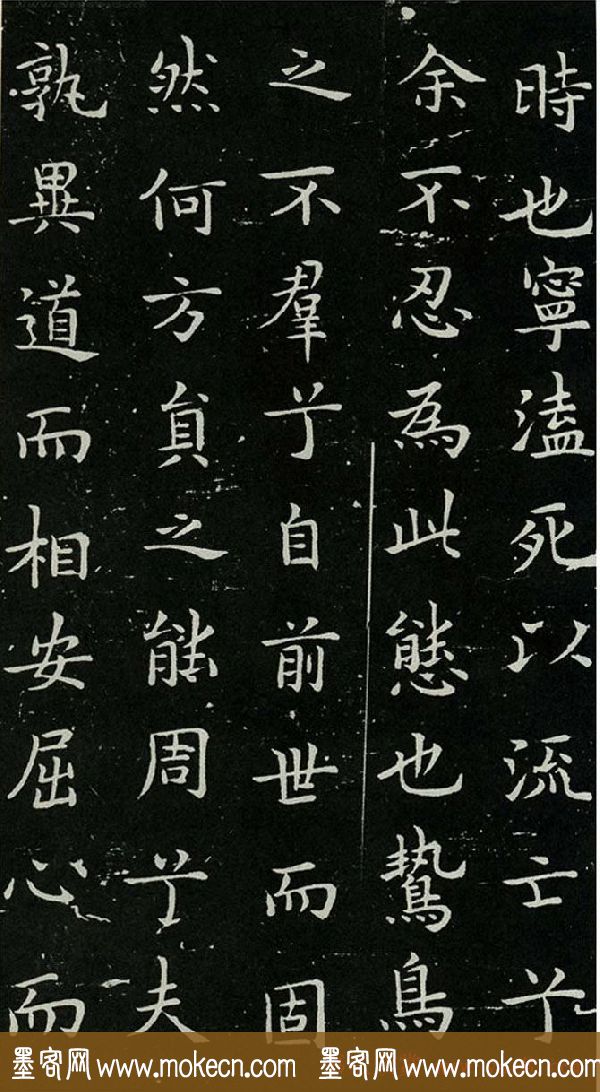 時也寧溘死以流亡兮
余不忍為此態也鷙鳥
之不羣兮自前世而固
然何方貟之能周兮夫
孰異道而相安屈心而
墨客网 www.mokecn.com 墨客网 www.mokecn.com